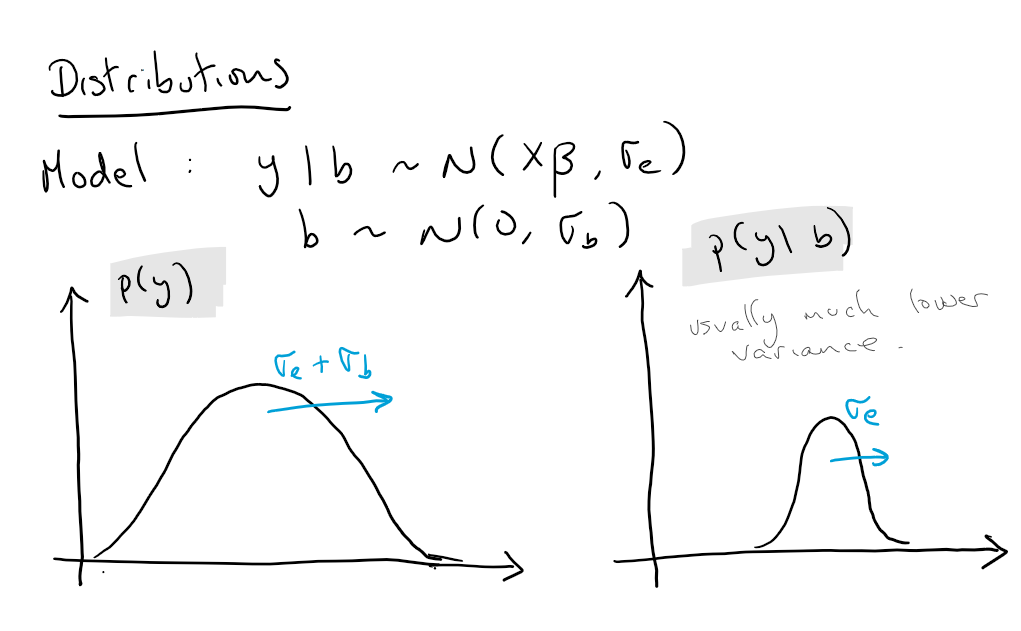 Distributions
Model : y | b ~ N(Xβ, σe)
b ~ N(0, σb)
p(y)
σe + σb
p(y| b)
usually much lower
variance.
σe